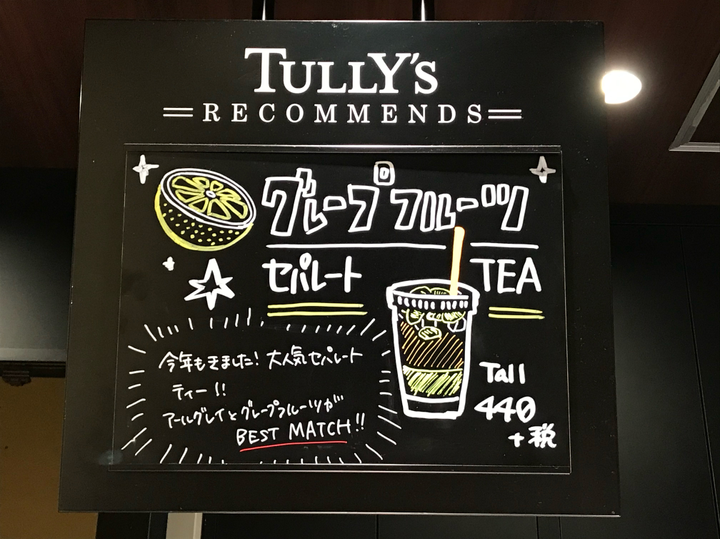 TULLY'S
RECOMMENDS
グレープフルーツ
セパレート TEA
今年もきました! 大人気セパレート
ティー!!
アールグレイとグレープフルーツが
BEST MATCH!!
Tall
440
+税